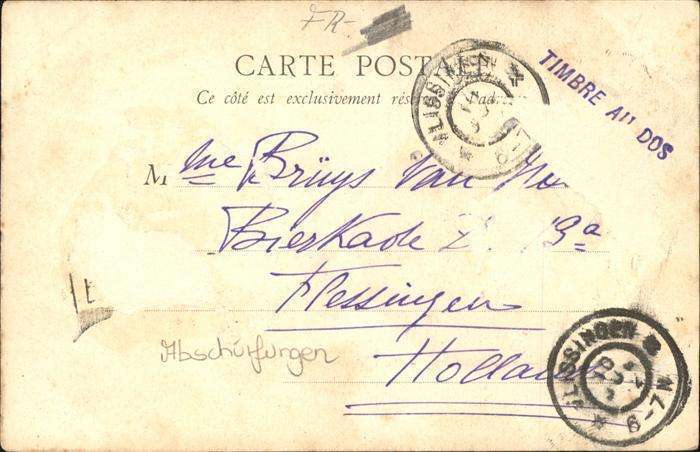 FR-
CARTE POSTALE
Ce côté est exclusivement réservé
TIMBRE AU DOS
VLISSINGEN
Mme Brüys Van
Bierkade 13a
Flessingen
Abschürfungen
Holland
VLISSINGEN
6-7 N